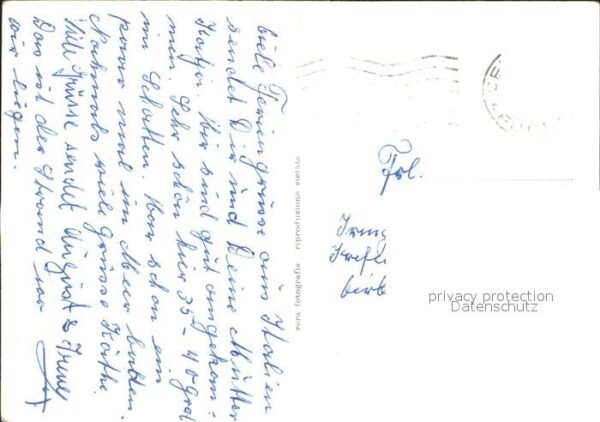 viele Feriengrüsse aus Italien
sendet Dir und Deine Mutter
Katja. Wir sind gut angekom=
men. Sehr schön hier 35-40 grad
im Schatten. War schon ein
paar mal im Meer baden.
Nochmals viele Grüsse Käthi
Viele Grüsse sendet August & Irene
Das ist der Strand wo
wir liegen.
vera fotografia riproduzione vietata
Frl.
privacy protection
Datenschutz